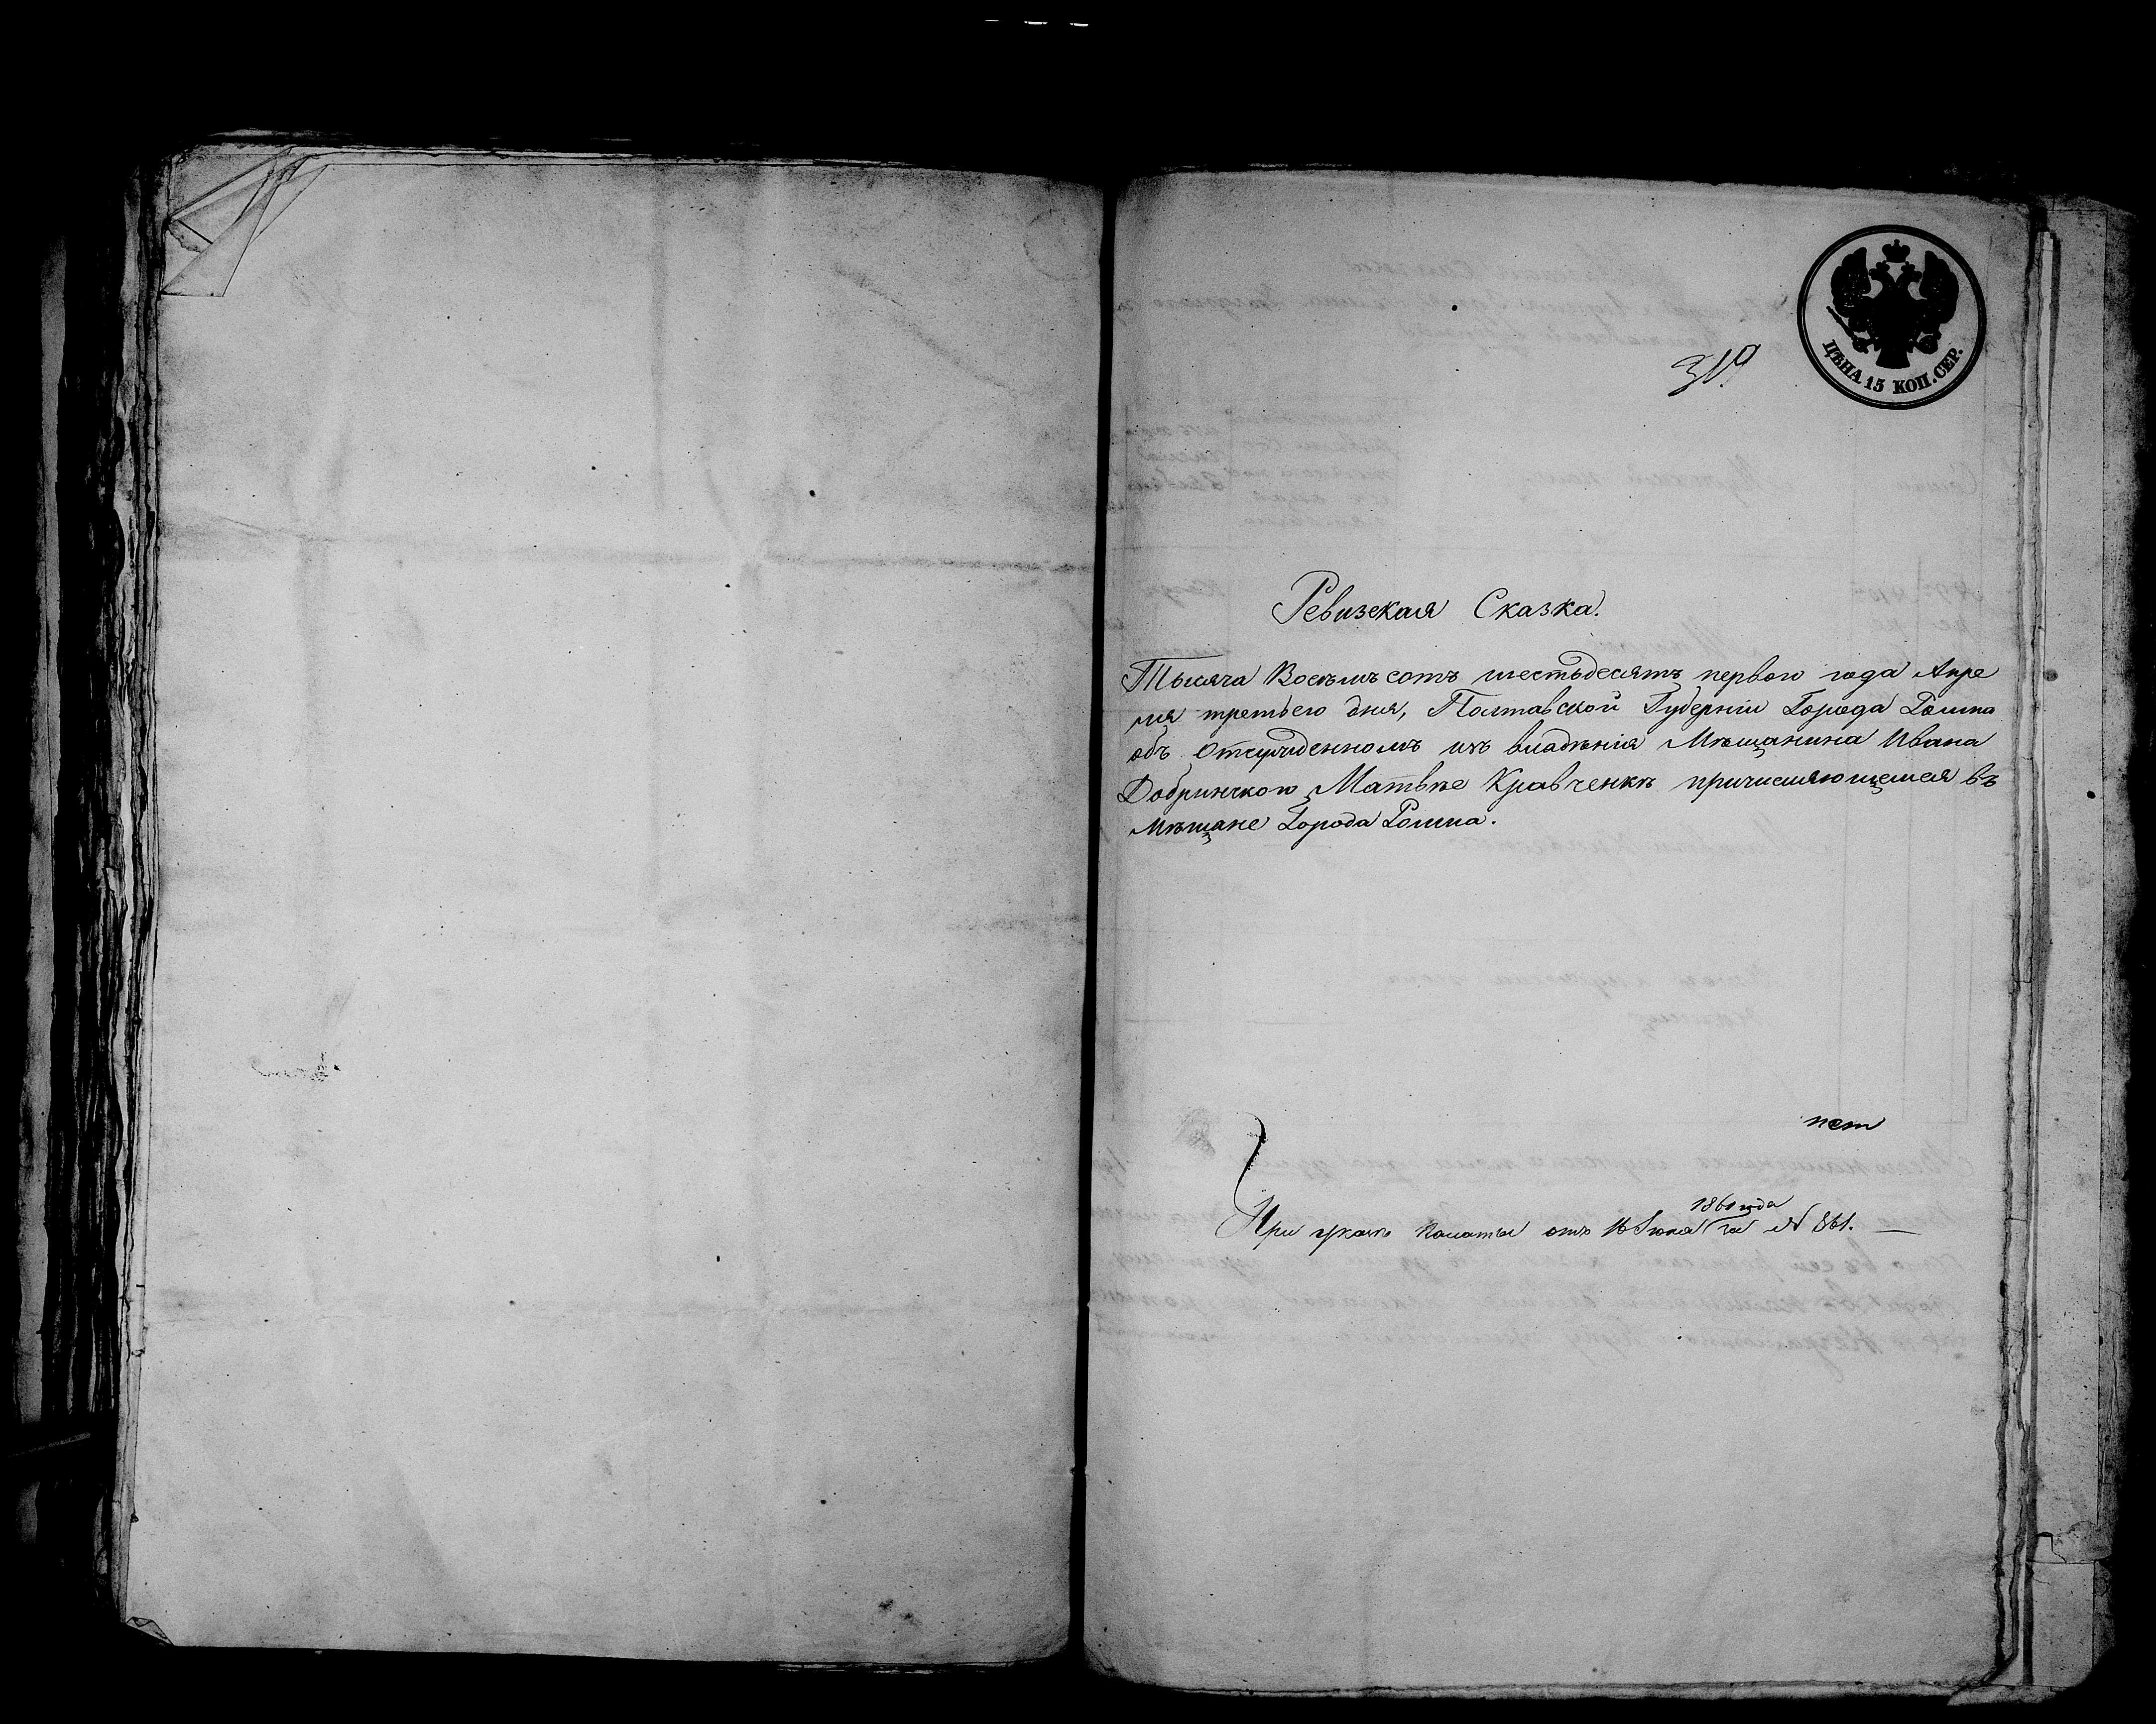 ЦѢНА 15 КОП. СЕР.
319
Ревизская Сказка.
Тысяча Восемьсотъ шестьдесятъ первого года Апре
ля третьего дня, Полтавской Губерніи Города Ромна
объ отсужденномъ изъ владѣнія Мѣщанина Ивана
Добринчкого Матвѣе Кравченкѣ причисляющемся въ
мѣщане Города Ромна.
1861 года
При указѣ Палаты отъ 16 Іюня за № 861.